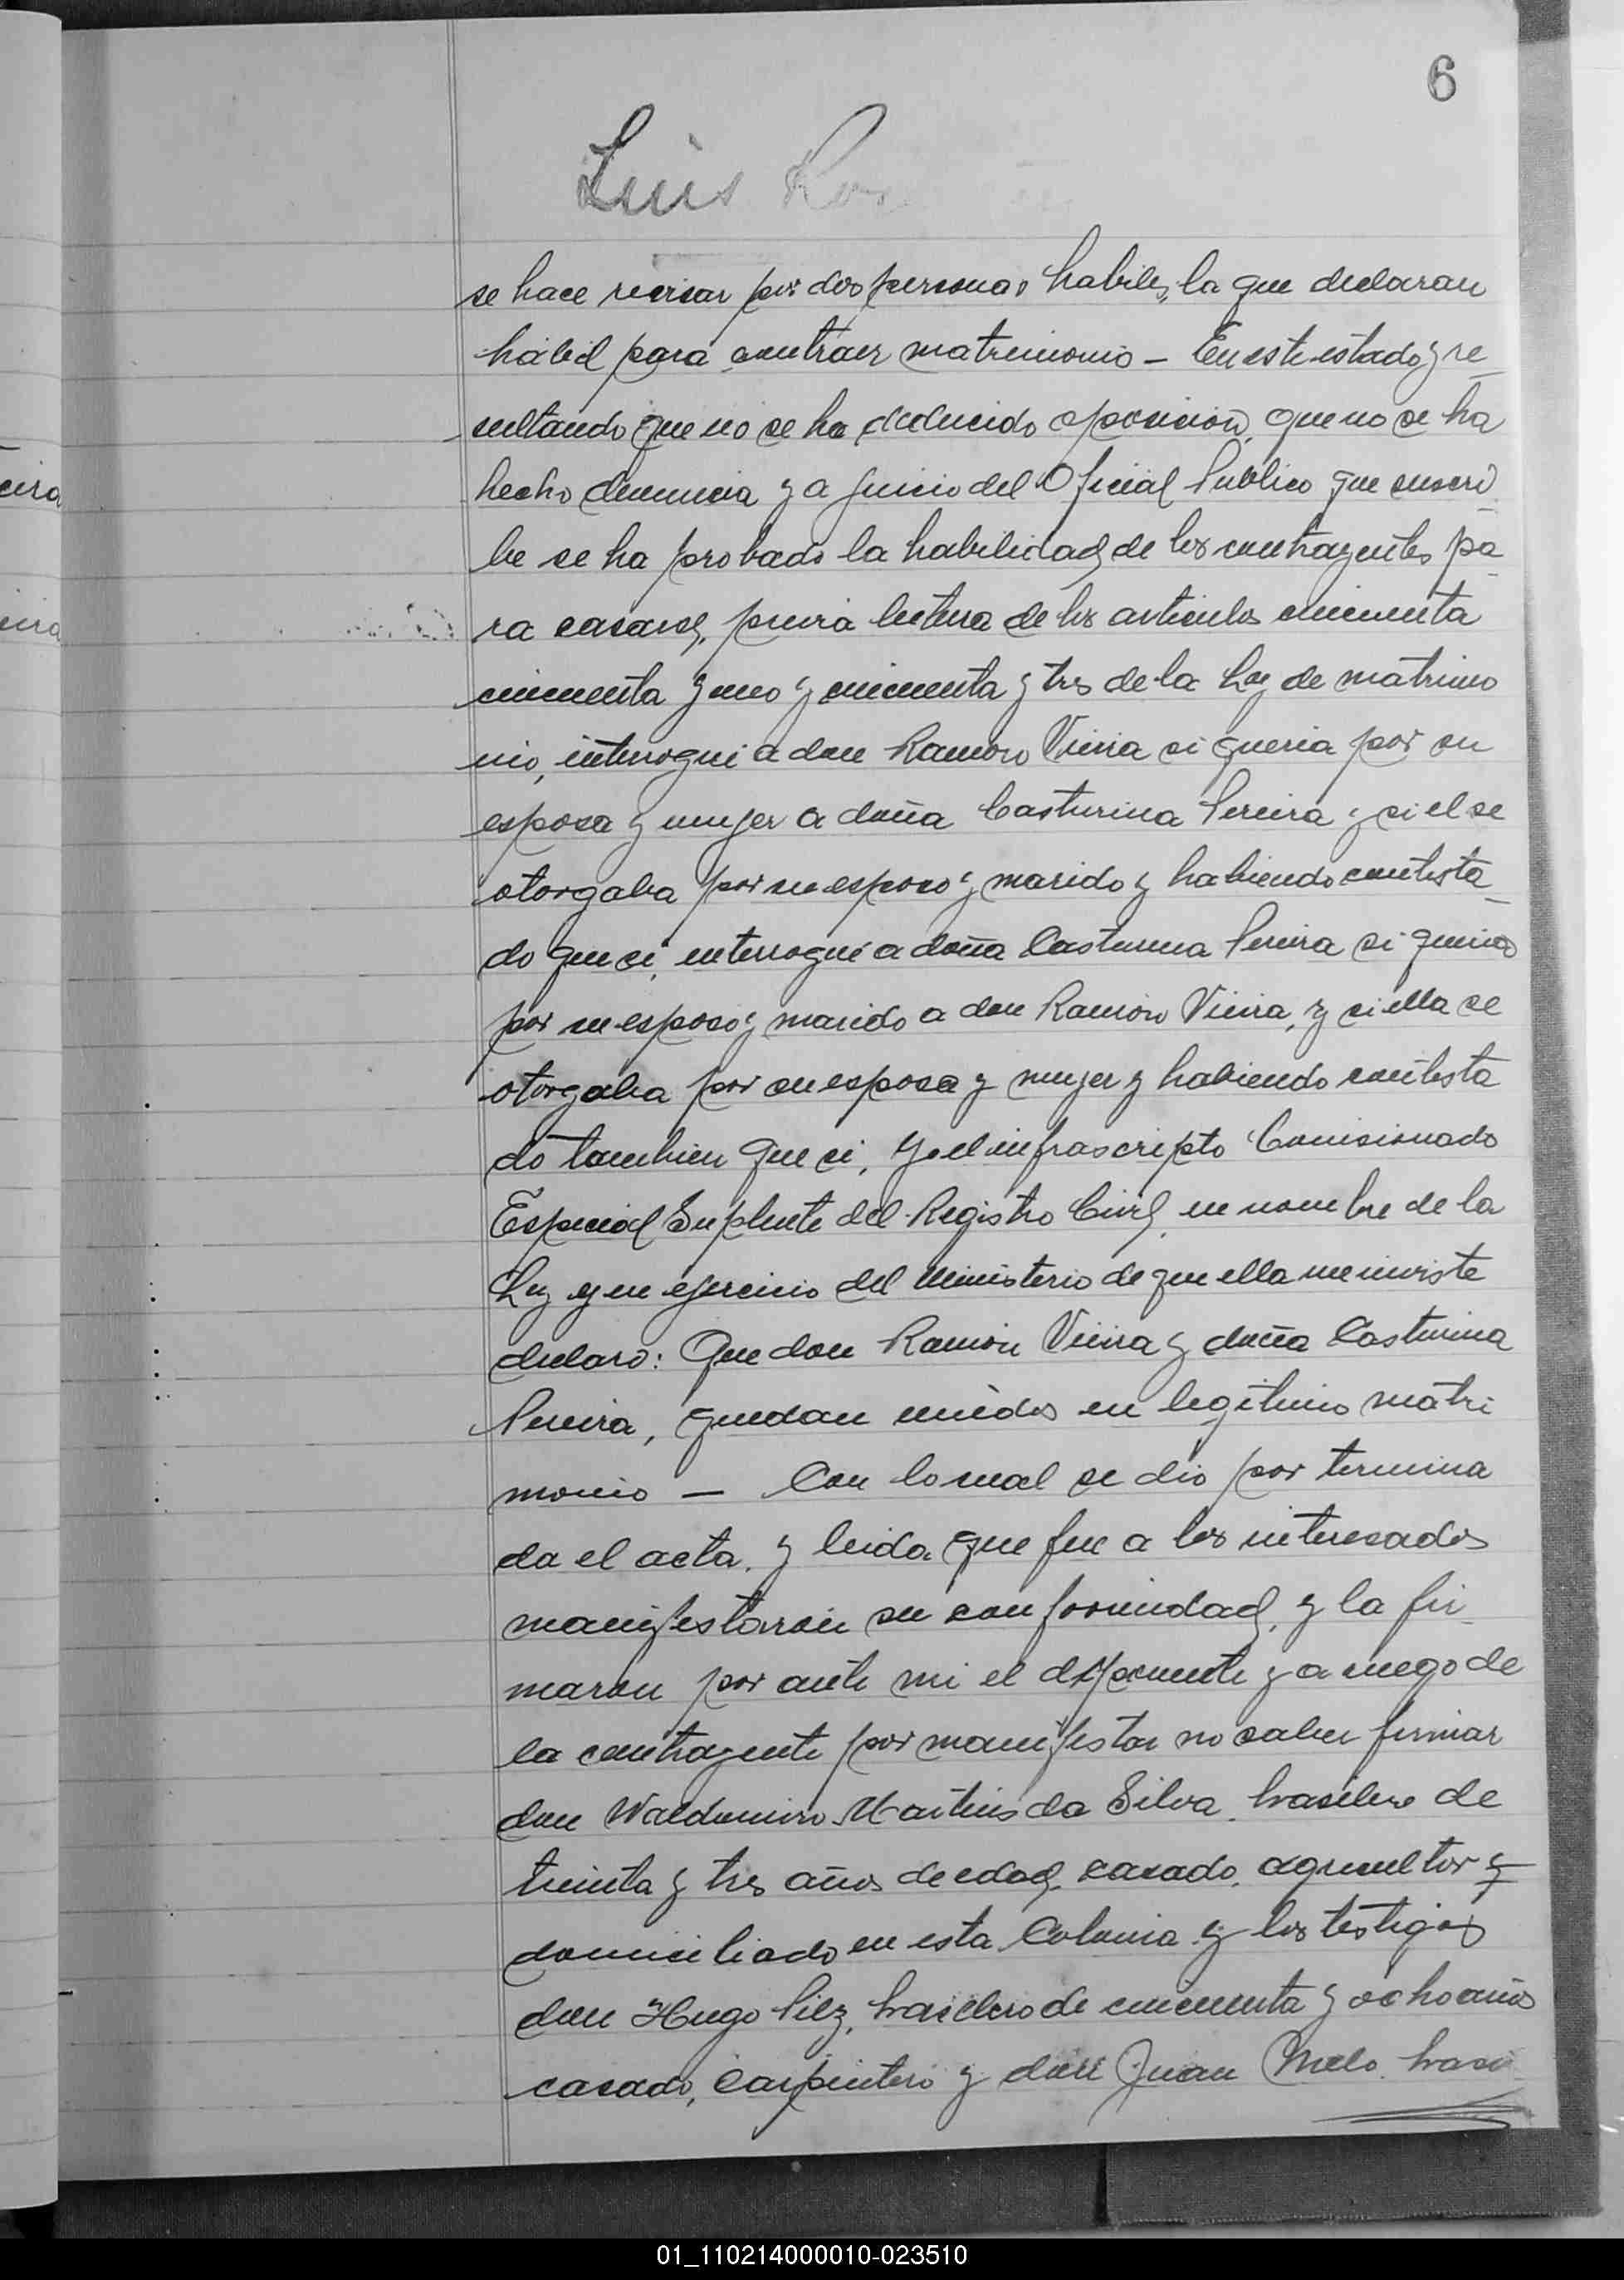 6
Luis
se hace revisar por dos personas habiles, la que declaran
hábil para contraer matrimonio - En este estado y re
sultando que no se ha deducido oposición, que no se ha
hecho denuncia y a juicio del Oficial Público que suscri
be se ha probado la habilidad de los contrayentes pa
ra casarse, previa lectura de los articulos cincuenta
cincuenta y uno y cincuenta y tres de la Ley de matrimo
nio, interogué a don Ramón Vieira si queria por su
esposa y mujer a doña Casturina Pereira y si el se
otorgaba por su esposo y marido y habiendo contesta
do que si, interrogué a doña Casturina Pereira si queria
por su esposo y marido a don Ramón Vieira, y si ella se
otorgaba por su esposa y mujer y habiendo contesta
do tambien que si, Yo el infrascripto Comisionado
Especial Suplente del Registro Civil, en nombre de la
Ley y en ejercicio del Ministerio de que ella me inviste
declaro: Que don Ramón Vieira y doña Casturina
Pereira, quedan unidos en legítimo matri
monio - Con lo cual se dio por termina
da el acta, y leida que fue a los interesados
manifestaron su conformidad, y la fir
maron por ante mi el exponente y a ruego de
la contrayente por manifestar no saber firmar
don Waldomiro Martins da Silva, brasilero de
treinta y tres años de edad, casado, agricultor y
domiciliado en esta Colonia y los testigos
don Hugo Pilz, brasilero de cincuenta y ocho años
casado, Carpintero y don Juan Melo, brasi
01_110214000010-023510